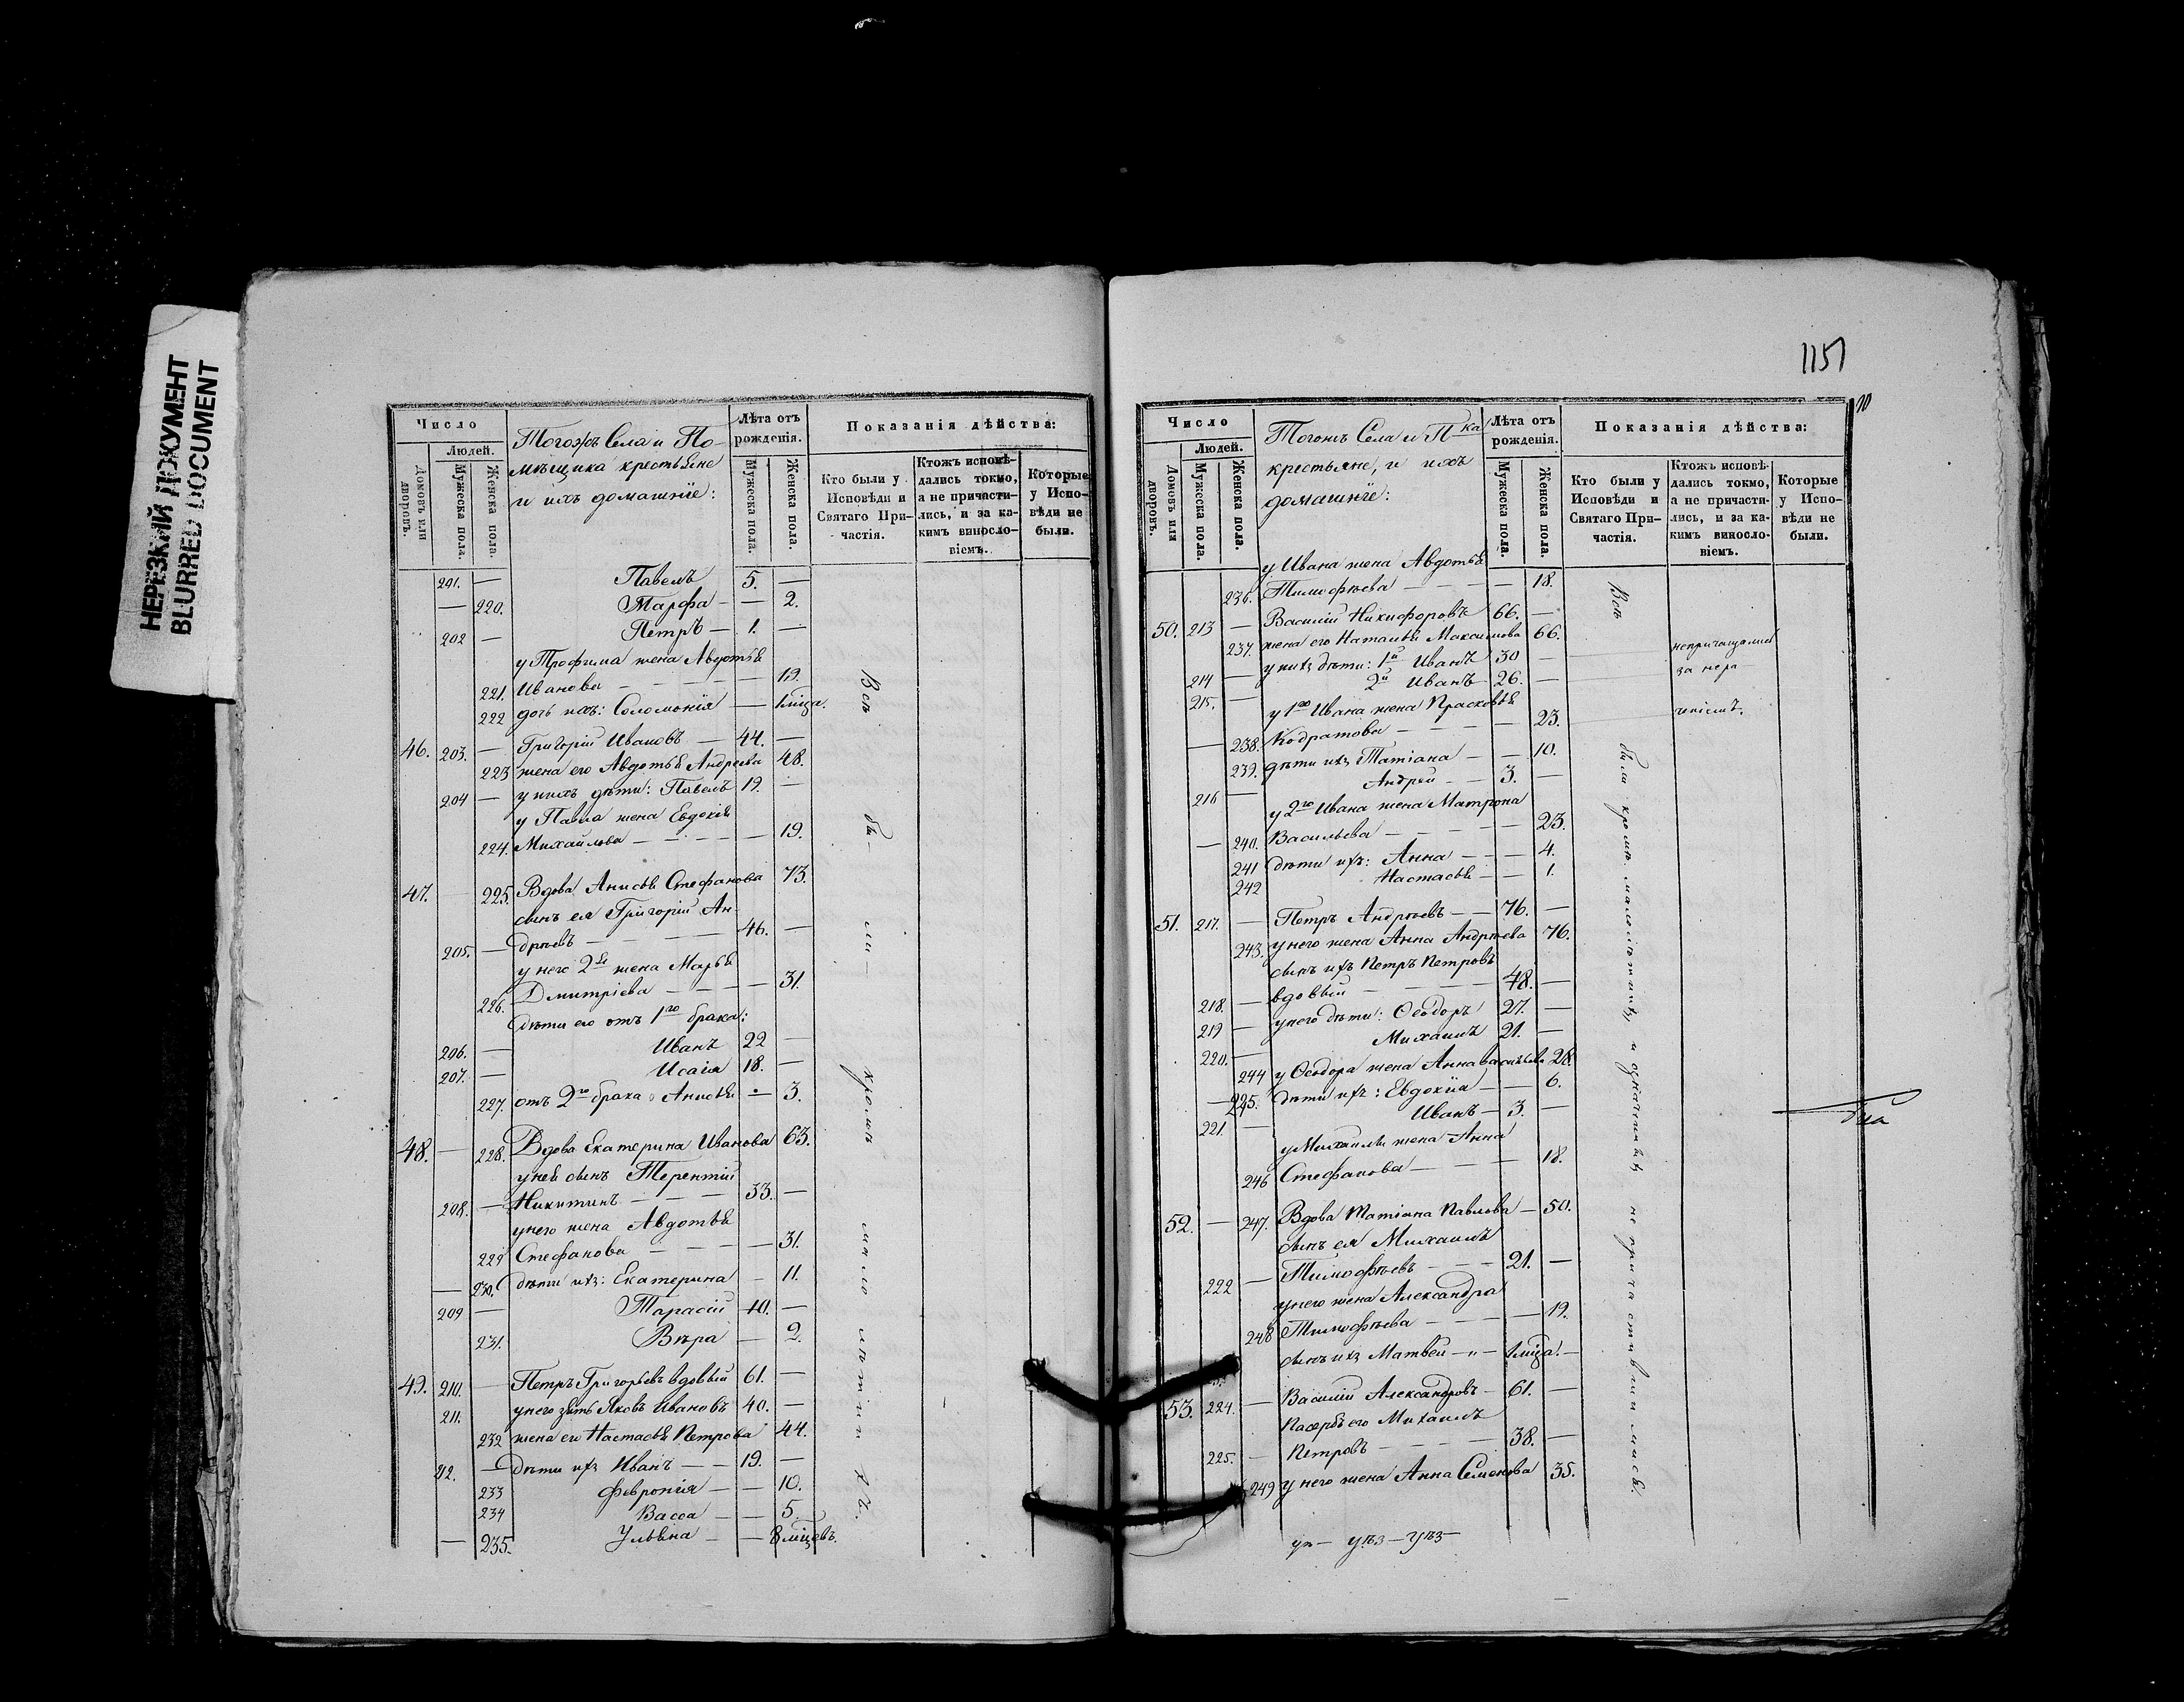 НЕРЕЗКИЙ ДОКУМЕНТ
BLURRED DOCUMENT
Число
Людей.
Домовъ или дворовъ.
Мужеска пола.
Женска пола.
Тогожъ Села и По-
мѣщика крестьяне
и ихъ домашніе:
Лѣта отъ рожденія.
Мужеска пола.
Женска пола.
Показанія дѣйства:
Кто были у Исповѣди и Святаго При-частія.
Ктожъ исповѣ-дались токмо, а не причасти-лись, и за ка-кимъ винosло-віемъ.
Которые у Испо-вѣди не были.
201. — Павелъ 5. —
— 220. Марфа — — 2.
202 — Петръ — 1. —
у Трофима жена Авдотья
221. Иванова — — — 19.
222 дочь ихъ: Соломонія — 1 мѣца.
46. 203. — Григорій Ивановъ — 44. —
223 жена его Авдотья Андреева 48.
204 — у нихъ дѣти: Павелъ 19. —
у Павла жена Евдокія
224. Михайлова — — — — 19.
47. — 225. Вдова Анисья Стефанова 73.
сынъ ея Григорій Ан-
205. — дрѣевъ — — — 46. —
у него 2я жена Марья
226. Дмитріева — — — 31.
дѣти его отъ 1го брака:
206. — Иванъ 22 —
207. — Исаія 18. —
227. отъ 2го брака: Анисья — 3.
48. — 228. Вдова Екатерина Иванова 63.
у ней сынъ Терентій
208. — Никитинъ — — — 33. —
у него жена Авдотья
229 Стефанова — — — 31.
— 230. дѣти ихъ: Екатерина — 11.
209 — Тарасій 10. —
231. Вѣра — 2.
49. 210. — Петръ Григорьевъ вдовый 61. —
211. у него зять Яковъ Ивановъ 40. —
232 жена его Настасья Петрова 44.
212. — дѣти ихъ Иванъ — — 19. —
233 Февронія — — 10.
234 Васса — — 5.
— 235. Ульяна — — 8 мѣцевъ.
Всѣ бы- ли- кромѣ мало лѣтнихъ
1151
Число
Людей.
Домовъ или дворовъ.
Мужеска пола.
Женска пола.
Тогожъ Села и Пка
крестьяне, и ихъ
домашніе:
Лѣта отъ рожденія.
Мужеска пола.
Женска пола.
Показанія дѣйства:
Кто были у Исповѣди и Святаго При-частія.
Ктожъ исповѣ-дались токмо, а не причасти-лись, и за ка-кимъ виносло-віемъ.
Которые у Испо-вѣди не были.
у Ивана жена Авдотья
236. Тимофѣева — — — 18.
50. 213 — Василій Никифоровъ 66. —
237. жена его Наталья Максимова 66.
214 — у нихъ дѣти: 1й Иванъ 30 —
215. — 2й Иванъ 26. —
у 1го Ивана жена Прасковья
— 238. Кодратова — — — 23.
239. дѣти ихъ Татіана — — 10.
216 — Андрей — — 3. —
у 2го Ивана жена Матрона
— 240. Васильева — — — 23.
241 дѣти ихъ: Анна — — — 4.
242 Настасья — — 1.
51. 217. — Петръ Андрѣевъ — — 76. —
243. у него жена Анна Андрѣева 76.
сынъ ихъ Петръ Петровъ
218. — вдовый — — — 48. —
219 — у него дѣти: Ѳеодоръ 27. —
220. — Михаилъ 21. —
244 у Ѳеодора жена Анна Васильева 28.
— 245. дѣти ихъ: Евдокія — — 6.
221. — Иванъ — 3. —
у Михаила жена Анна
246 Стефанова — — — 18.
52. — 247. Вдова Татіана Павлова — 50.
сынъ ея Михаилъ
222 — Тимофѣевъ — — — 21. —
у него жена Александра
248 Тимофѣева — — — — 19.
сынъ ихъ Матвей — „ — 1 мѣца. —
53. 224. — Василій Александровъ — 61. —
Пасербъ его Михаилъ
225. — Петровъ — — — 38. —
249 у него жена Анна Семенова 35.
Всѣ были кромѣ малолѣтнихъ и означенныхъ не причастившимися.
непричащались
за нера-